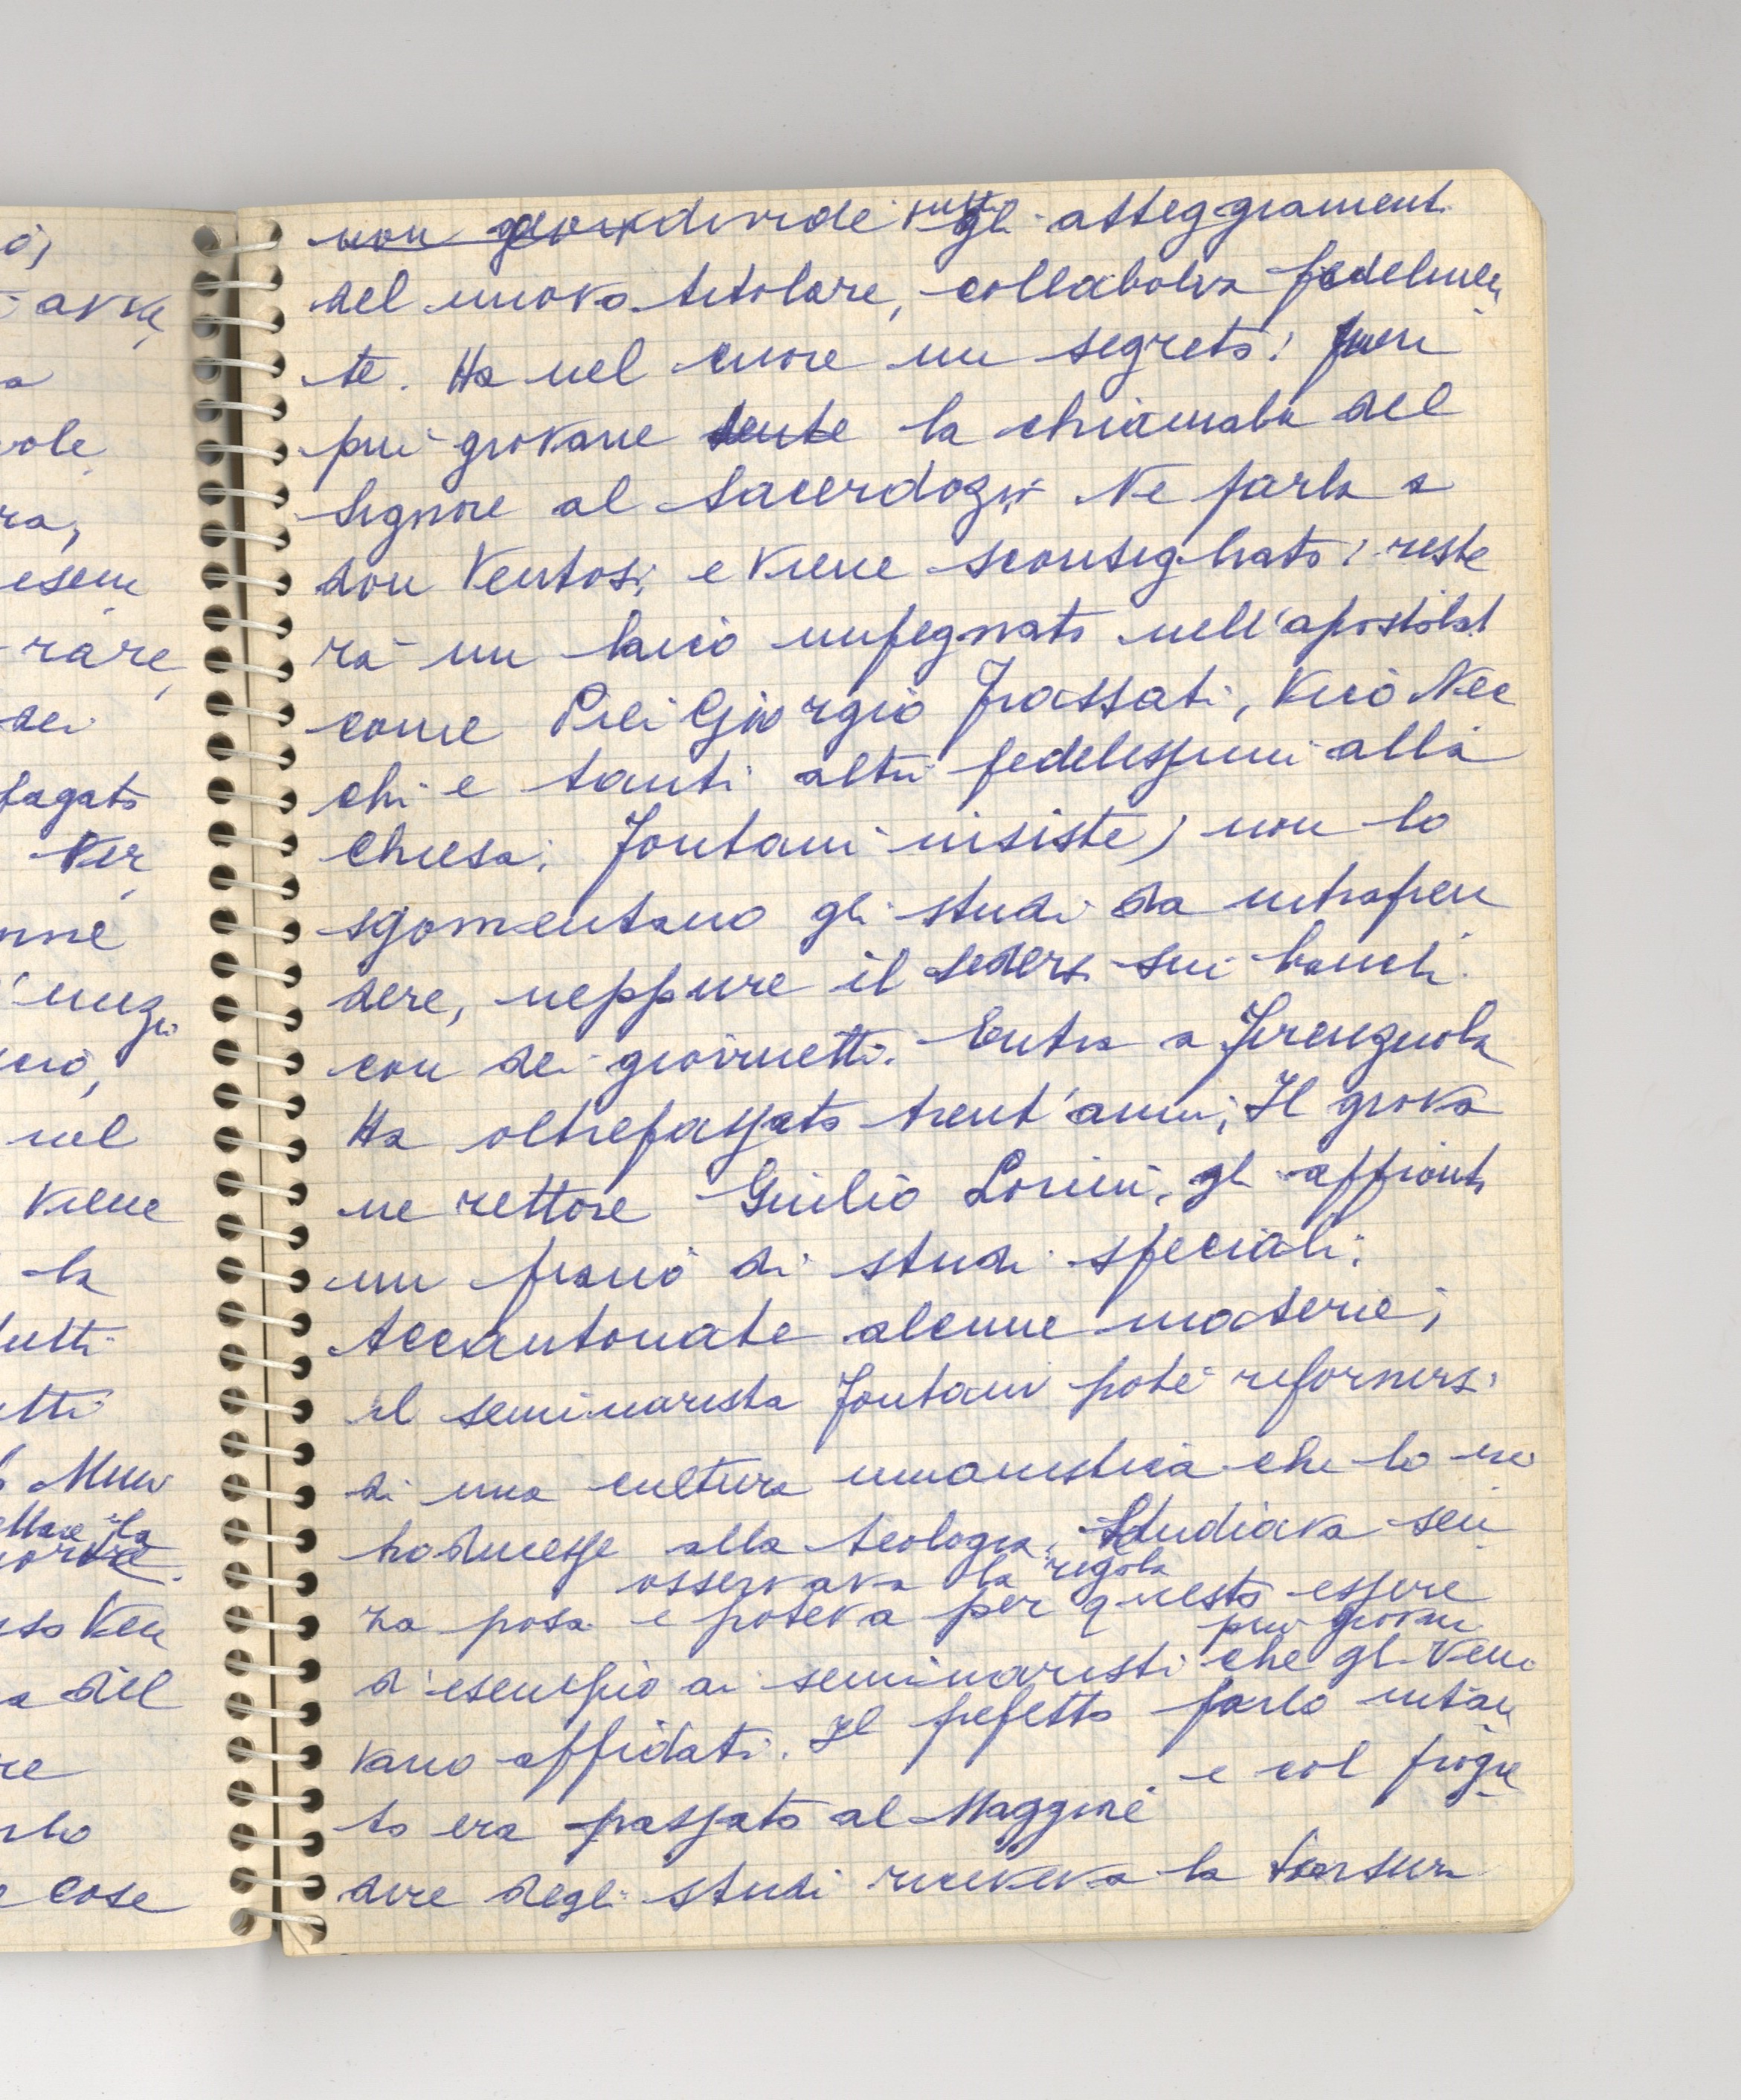 ò,
avve
a
vole
ra,
esem
rare,
dei
pagato
Ver
nne
nel
viene
la
tutti
etti
del
re
cose
non condivide tutti gli atteggiamenti
del nuovo titolare, collabora fedelmen
te. Ha nel cuore un segreto:
più giovane sente la chiamata del
Signore al Sacerdozio. Ne parla a
don Ventosi e viene sconsigliato: reste
rà un laico impegnato nell'apostolat
come Pier Giorgio Frassati, Vico Nec
chi e tanti altri fedelissimi alla
Chiesa. Fontani insiste; non lo
sgomentano gli studi da intrapren
dere, neppure il sedersi sui banchi
con dei giovinetti. Entra a Firenzuola
Ha oltrepassato trent'anni; Il giova
ne rettore Giulio Lorini, gli appronta
un piano di studi speciali;
Accantonate alcune materie;
il seminarista Fontani poté rifornirsi
di una cultura umanistica che lo in
troducesse alla teologia. Studiava sen
osservava la regola
za posa e poteva per questo essere
più giovani
d'esempio ai seminaristi che gli veni
vano affidati. Il prefetto Parlo intan
to era passato al Maggiore e col progre
dire degli studi riceveva la tonsura